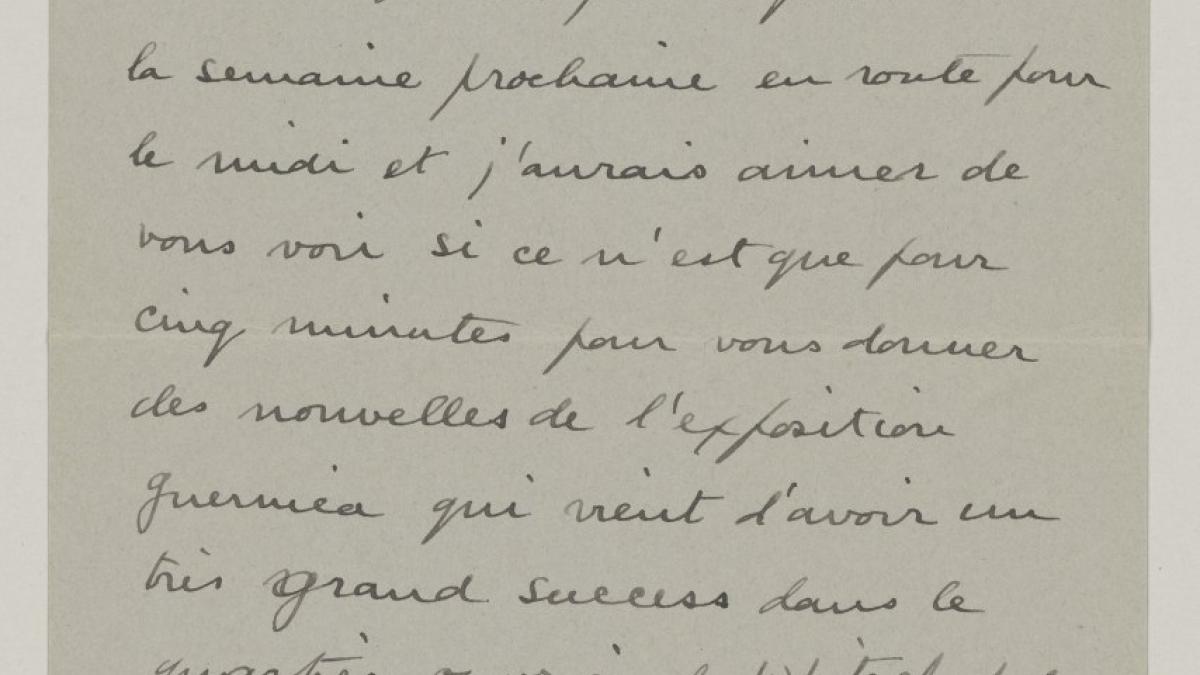 la semaine prochaine en route pour
le midi et j'aurais aimer de
vous voir si ce n'est que pour
cinq minutes pour vous donner
des nouvelles de l'exposition
Guernica qui vient d'avoir un
très grand success dans le
quartier